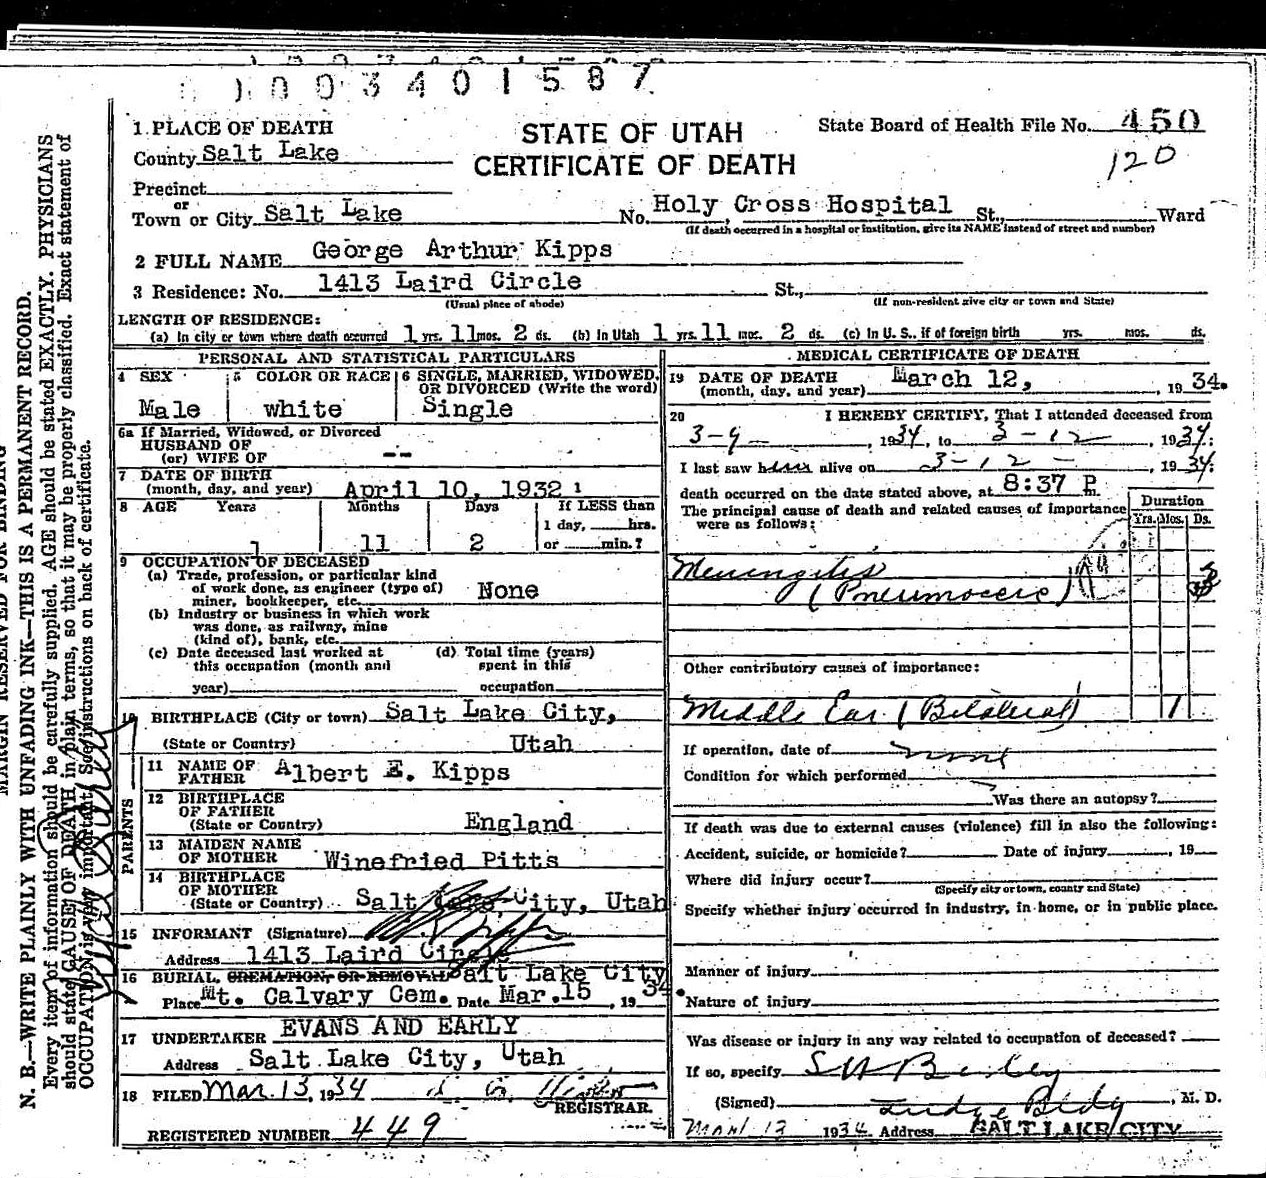 0003401587
1 PLACE OF DEATH
STATE OF UTAH
CERTIFICATE OF DEATH
State Board of Health File No. 450
120
County Salt Lake
Precinct
or
Town or City Salt Lake No. Holy Cross Hospital St., Ward
(If death occurred in a hospital or institution, give its NAME instead of street and number)
2 FULL NAME George Arthur Kipps
3 Residence: No. 1413 Laird Circle St.,
(Usual place of abode) (If non-resident give city or town and State)
LENGTH OF RESIDENCE:
(a) In city or town where death occurred 1 yrs. 11 mos. 2 ds. (b) In Utah 1 yrs. 11 mos. 2 ds. (c) In U. S., if of foreign birth yrs. mos. ds.
PERSONAL AND STATISTICAL PARTICULARS
4 SEX
Male
5 COLOR OR RACE
white
6 SINGLE, MARRIED, WIDOWED, OR DIVORCED (Write the word)
Single
6a If Married, Widowed, or Divorced
HUSBAND OF
(or) WIFE OF --
7 DATE OF BIRTH
(month, day, and year) April 10, 1932
8 AGE Years Months Days If LESS than
1 day, hrs.
1 11 2 or min.?
9 OCCUPATION OF DECEASED
(a) Trade, profession, or particular kind
of work done, as engineer (type of)
miner, bookkeeper, etc. None
(b) Industry or business in which work
was done, as railway, mine
(kind of), bank, etc.
(c) Date deceased last worked at
this occupation (month and
year)
(d) Total time (years)
spent in this
occupation
10 BIRTHPLACE (City or town) Salt Lake City,
(State or Country) Utah
PARENTS
11 NAME OF
FATHER Albert E. Kipps
12 BIRTHPLACE
OF FATHER
(State or Country) England
13 MAIDEN NAME
OF MOTHER Winefried Pitts
14 BIRTHPLACE
OF MOTHER
(State or Country) Salt Lake City, Utah
15 INFORMANT (Signature)
Address 1413 Laird Circle
16 BURIAL, CREMATION, OR REMOVAL Salt Lake City
Place Mt. Calvary Cem. Date Mar. 15, 1934.
17 UNDERTAKER EVANS AND EARLY
Address Salt Lake City, Utah
18 FILED Mar. 13, 1934
REGISTRAR.
REGISTERED NUMBER 449
MEDICAL CERTIFICATE OF DEATH
19 DATE OF DEATH
(month, day, and year) March 12, 1934.
20 I HEREBY CERTIFY, That I attended deceased from
3-9-, 1934, to 3-12, 1934;
I last saw him alive on 3-12-, 1934;
death occurred on the date stated above, at 8:37 P m.
The principal cause of death and related causes of importance
were as follows:
Duration
Yrs. Mos. Ds.
Meningitis
(Pneumococcic)
Other contributory causes of importance:
Middle Ear (Bilateral) 1
If operation, date of none
Condition for which performed
Was there an autopsy?
If death was due to external causes (violence) fill in also the following:
Accident, suicide, or homicide? Date of injury , 19
Where did injury occur?
(Specify city or town, county and State)
Specify whether injury occurred in industry, in home, or in public place.
Manner of injury
Nature of injury
Was disease or injury in any way related to occupation of deceased?
If so, specify
(Signed) , M. D.
Judge Bldg
Mar 13 1934 Address SALT LAKE CITY
MARGIN RESERVED FOR BINDING
N. B.—WRITE PLAINLY WITH UNFADING INK—THIS IS A PERMANENT RECORD.
Every item of information should be carefully supplied. AGE should be stated EXACTLY. PHYSICIANS
should state CAUSE OF DEATH in plain terms, so that it may be properly classified. Exact statement of
OCCUPATION is very important. See instructions on back of certificate.